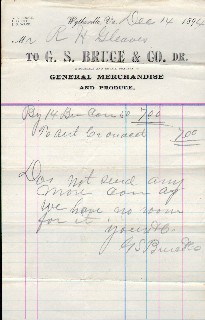 Wytheville, Va. Dec 14 1894
Mr R H Gleaves
TO G. S. BRUCE & CO. DR.
GENERAL MERCHANDISE
AND PRODUCE.
By 14 Bu Corn 50 7.00
To acct 7.00
Do not send any
more corn as
we have no room
for it. yours &c
G S Bruce & Co